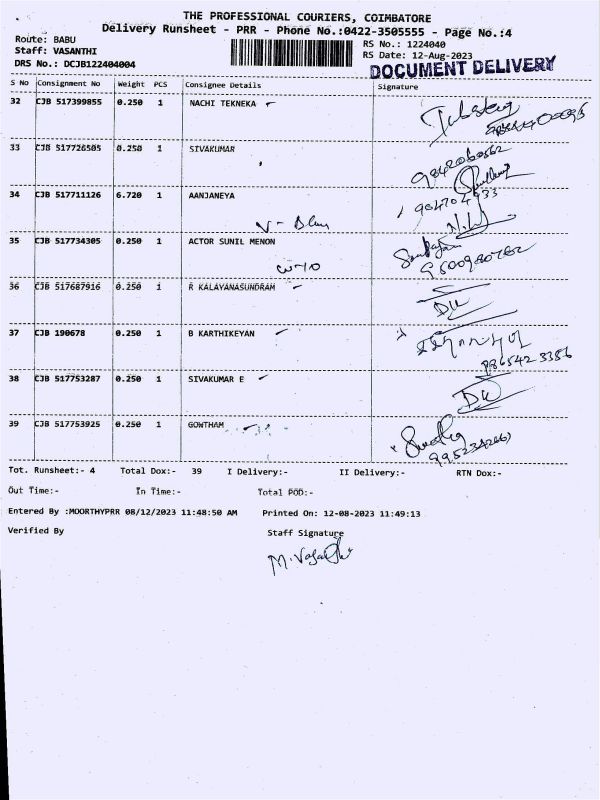 THE PROFESSIONAL COURIERS, COIMBATORE
Delivery Runsheet - PRR - Phone No.:0422-3505555 - Page No.:4
Route: BABU
RS No.: 1224040
Staff: VASANTHI
RS Date: 12-Aug-2023
DRS No.: DCJB122404004
DOCUMENT DELIVERY
S No Consignment No Weight PCS Consignee Details Signature
32 CJB 517399855 0.250 1 NACHI TEKNEKA
33 CJB 517726505 0.250 1 SIVAKUMAR
9842060562
34 CJB 517711126 6.720 1 AANJANEYA
35 CJB 517734305 0.250 1 ACTOR SUNIL MENON
9500980762
36 CJB 517687916 0.250 1 R KALAYANASUNDRAM
37 CJB 190678 0.250 1 B KARTHIKEYAN
38 CJB 517753287 0.250 1 SIVAKUMAR E
39 CJB 517753925 0.250 1 GOWTHAM
Tot. Runsheet:- 4 Total Dox:- 39 I Delivery:- II Delivery:- RTN Dox:-
Out Time:- In Time:- Total POD:-
Entered By :MOORTHYPRR 08/12/2023 11:48:50 AM Printed On: 12-08-2023 11:49:13
Verified By Staff Signature